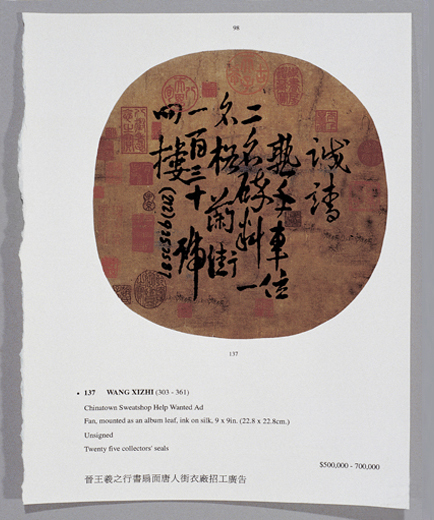 98
誠請
熟手車位
二名碎料一
名格蘭街
一百三十號
四樓
137
137 WANG XIZHI (303 - 361)
Chinatown Sweatshop Help Wanted Ad
Fan, mounted as an album leaf, ink on silk, 9 x 9in. (22.8 x 22.8cm.)
Unsigned
Twenty five collectors' seals
$500,000 - 700,000
晉王羲之行書扇面唐人街衣廠招工廣告